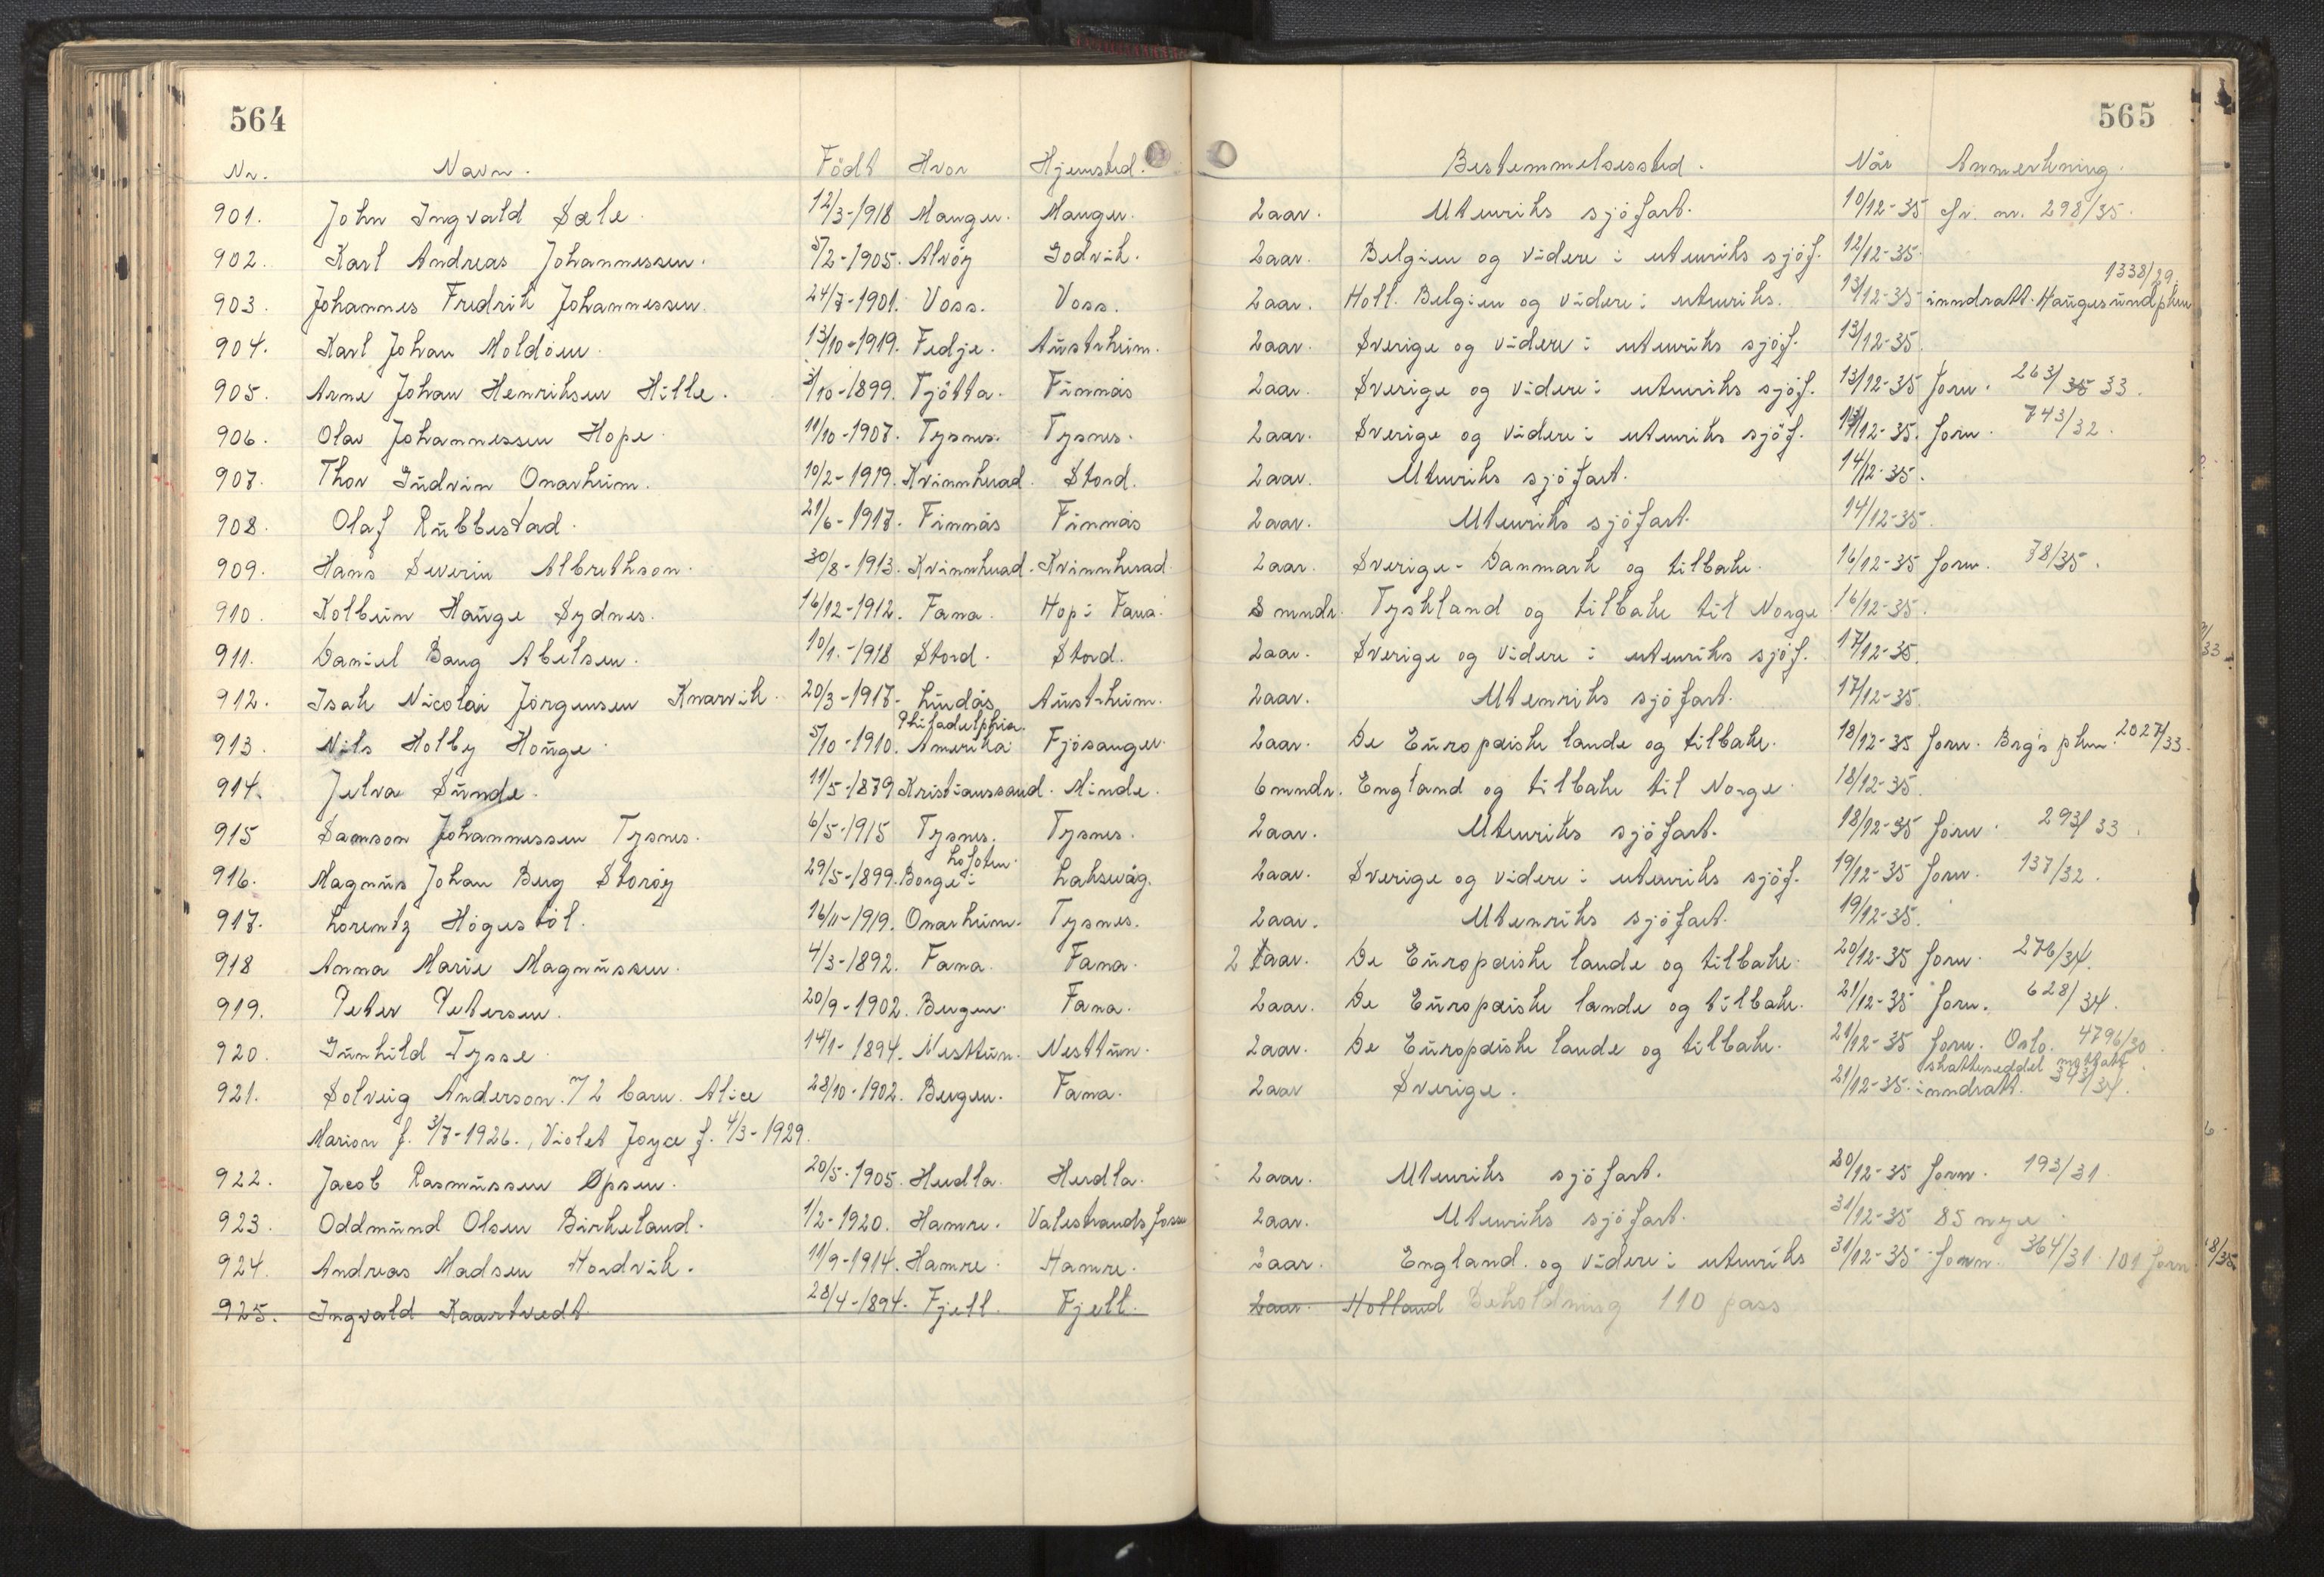 564
565
Nr. Navn. Födt Hvor Hjemsted. Bestemmelsessted. Når Anmerkning.
901. John Ingvald Sæle. 12/3-1918 Manger. Manger. 2 aar. Utenriks sjöfart. 10/12-35 fr. nr. 298/35.
902. Karl Andreas Johannessen. 5/2-1905. Alvöy Godvik. 2 aar. Belgien og videre i utenriks sjöf. 12/12-35.
1338/29
903. Johannes Fredrik Johannessen. 24/7-1901. Voss. Voss. 2 aar. Holl. Belgien og videre i utenriks. 13/12-35 inndratt. Haugesund pkm
904. Karl Johan Moldöen. 13/10-1919. Fedje. Austrheim. 2 aar. Sverige og videre i utenriks sjöf. 13/12-35.
905. Arne Johan Henriksen Hille. 3/10-1899. Tjötta. Finnås 2 aar. Sverige og videre i utenriks sjöf. 13/12-35 forn. 263/35 33.
906. Olav Johannessen Hope. 11/10-1907. Tysnes. Tysnes. 2 aar. Sverige og videre i utenriks sjöf. 13/12-35. forn. 743/32.
907. Thor Gudvin Onarheim. 10/2-1919. Kvinnherad. Stord. 2 aar. Utenriks sjöfart. 14/12-35.
908. Olaf Rubbestad. 21/6-1917. Finnås Finnås 2 aar. Utenriks sjöfart. 14/12-35.
909. Hans Severin Albrethson. 30/8-1913. Kvinnherad. Kvinnherad 2 aar. Sverige - Danmark og tilbake. 16/12-35 forn. 78/35.
910. Kolbein Hauge Sydnes. 16/12-1912. Fana. Hop i Fana. 8 mndr. Tyskland og tilbake til Norge 16/12-35.
911. Daniel Bang Abelsen. 10/1.-1918 Stord. Stord. 2 aar. Sverige og videre i utenriks sjöf. 17/12-35.
912. Isak Nicolai Jörgensen Knarvik. 20/3-1917- Lindås Austrheim. 2 aar. Utenriks sjöfart. 17/12-35.
Philadelphia.
913. Nils Holby Houge. 5/10-1910. Amerika Fjösanger. 2 aar. De Europæiske lande og tilbake. 18/12-35 forn. Brg's pkm. 2027/33.
914. Jelva Sunde. 11/5-1879 Kristianssand. Minde. 6 mndr. England og tilbake til Norge. 18/12-35.
915 Samson Johannessen Tysnes. 6/5-1915 Tysnes. Tysnes. 2 aar. Utenriks sjöfart. 18/12-35 forn. 293/33.
Lofoten.
916. Magnus Johan Berg Storöy 29/5-1899. Borge i Laksevåg. 2 aar. Sverige og videre i utenriks sjöf. 19/12-35 forn. 137/32.
917. Lorentz Högestöl. 16/11-1919. Onarheim. Tysnes. 2 aar. Utenriks sjöfart. 19/12-35.
918 Anna Marie Magnussen. 4/3-1892. Fana. Fana. 2 aar. De Europæiske lande og tilbake. 20/12-35 forn. 276/34.
919. Peter Petersen. 20/9-1902. Bergen. Fana. 2 aar. De Europæiske lande og tilbake. 21/12-35 forn. 628/34.
920. Gunhild Tysse. 14/1-1894. Nesttun. Nesttun. 2 aar. De Europæiske lande og tilbake. 21/12-35 forn. Oslo. 4796/30.
skatteseddel mottatt.
921. Solveig Anderson. 2 barn. Alice 28/10-1902. Bergen. Fana. 2 aar Sverige. 21/12-35. inndratt. 343/34.
Marion f. 3/7-1926., Violet Joyce f. 4/3-1929.
922. Jacob Rasmussen Øpsen. 20/5-1905. Herdla. Herdla. 2 aar. Utenriks sjöfart. 30/12-35 forn. 193/31.
923. Oddmund Olsen Birkeland. 1/2-1920. Hamre. Valestrandsfossen 2 aar. Utenriks sjöfart. 31/12-35 85 nye.
924. Andreas Madsen Hordvik. 11/9-1914. Hamre. Hamre. 2 aar. England. og videre i utenriks 31/12-35 forn. 364/31. 101 forn.
925. Ingvald Kaartvedt. 28/4-1894. Fjell. Fjell. 2 aar. Holland Beholdning 110 pass